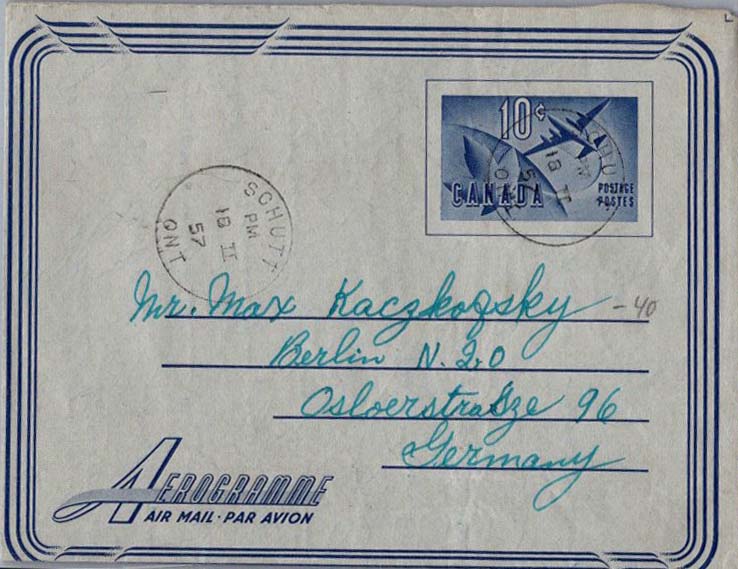 10¢
CANADA
POSTAGE
POSTES
SCHUTT
PM
18 II
57
ONT
SCHU
PM
18 II
57
ONT
Mr. Max Kaczkofsky -40
Berlin N. 20
Osloerstraßze 96
Germany
AEROGRAMME
AIR MAIL · PAR AVION